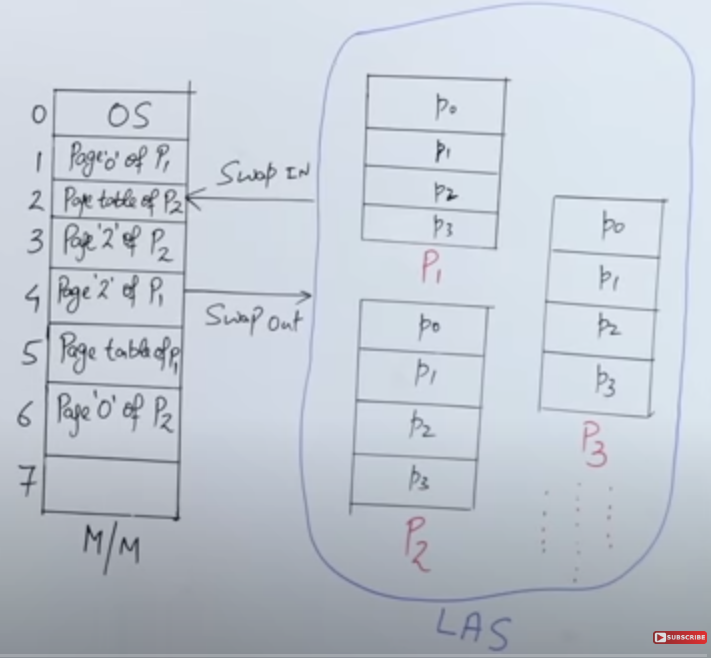 0 OS
1 Page '0' of P1
2 Page table of P2
3 Page '2' of P2
4 Page '2' of P1
5 Page table of P1
6 Page '0' of P2
7
M/M
Swap IN
Swap Out
p0
p1
p2
p3
P1
p0
p1
p2
p3
P2
p0
p1
p2
p3
P3
LAS
SUBSCRIBE